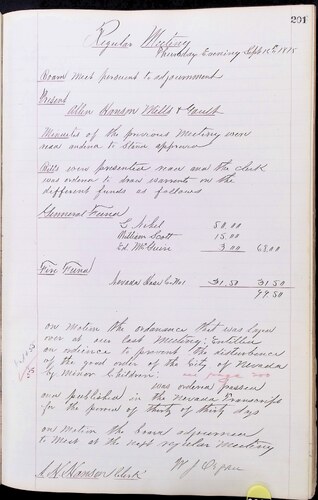 201
Regular Meeting
Thursday Evening Sept 1885
Board Meet persuant to adjournment
Present
Allen Hanson Mills & Gault
Minutes of the previous Meeting were
read ordered to stand approved
Bills were presented read and the clerk
was ordered to draw warrants on the
different funds as follows
General Fund
50.00
William Scott 15.00
Ed McGuire 3.00 68.00
Fire Fund
Nevada Hose Co No 1 31.50 31.50
99.50
on Motion the ordinance that was layed
over at our last Meeting: Entitled
an ordinance to prevent the disturbance
of the good order of the City of Nevada
by Minor Children:
was ordered passed
and published in the Nevada Transcript
for the period of thirty of thirty days
on motion the board adjourned
to Meet at the next regular Meeting
Hanson Clerk
W J